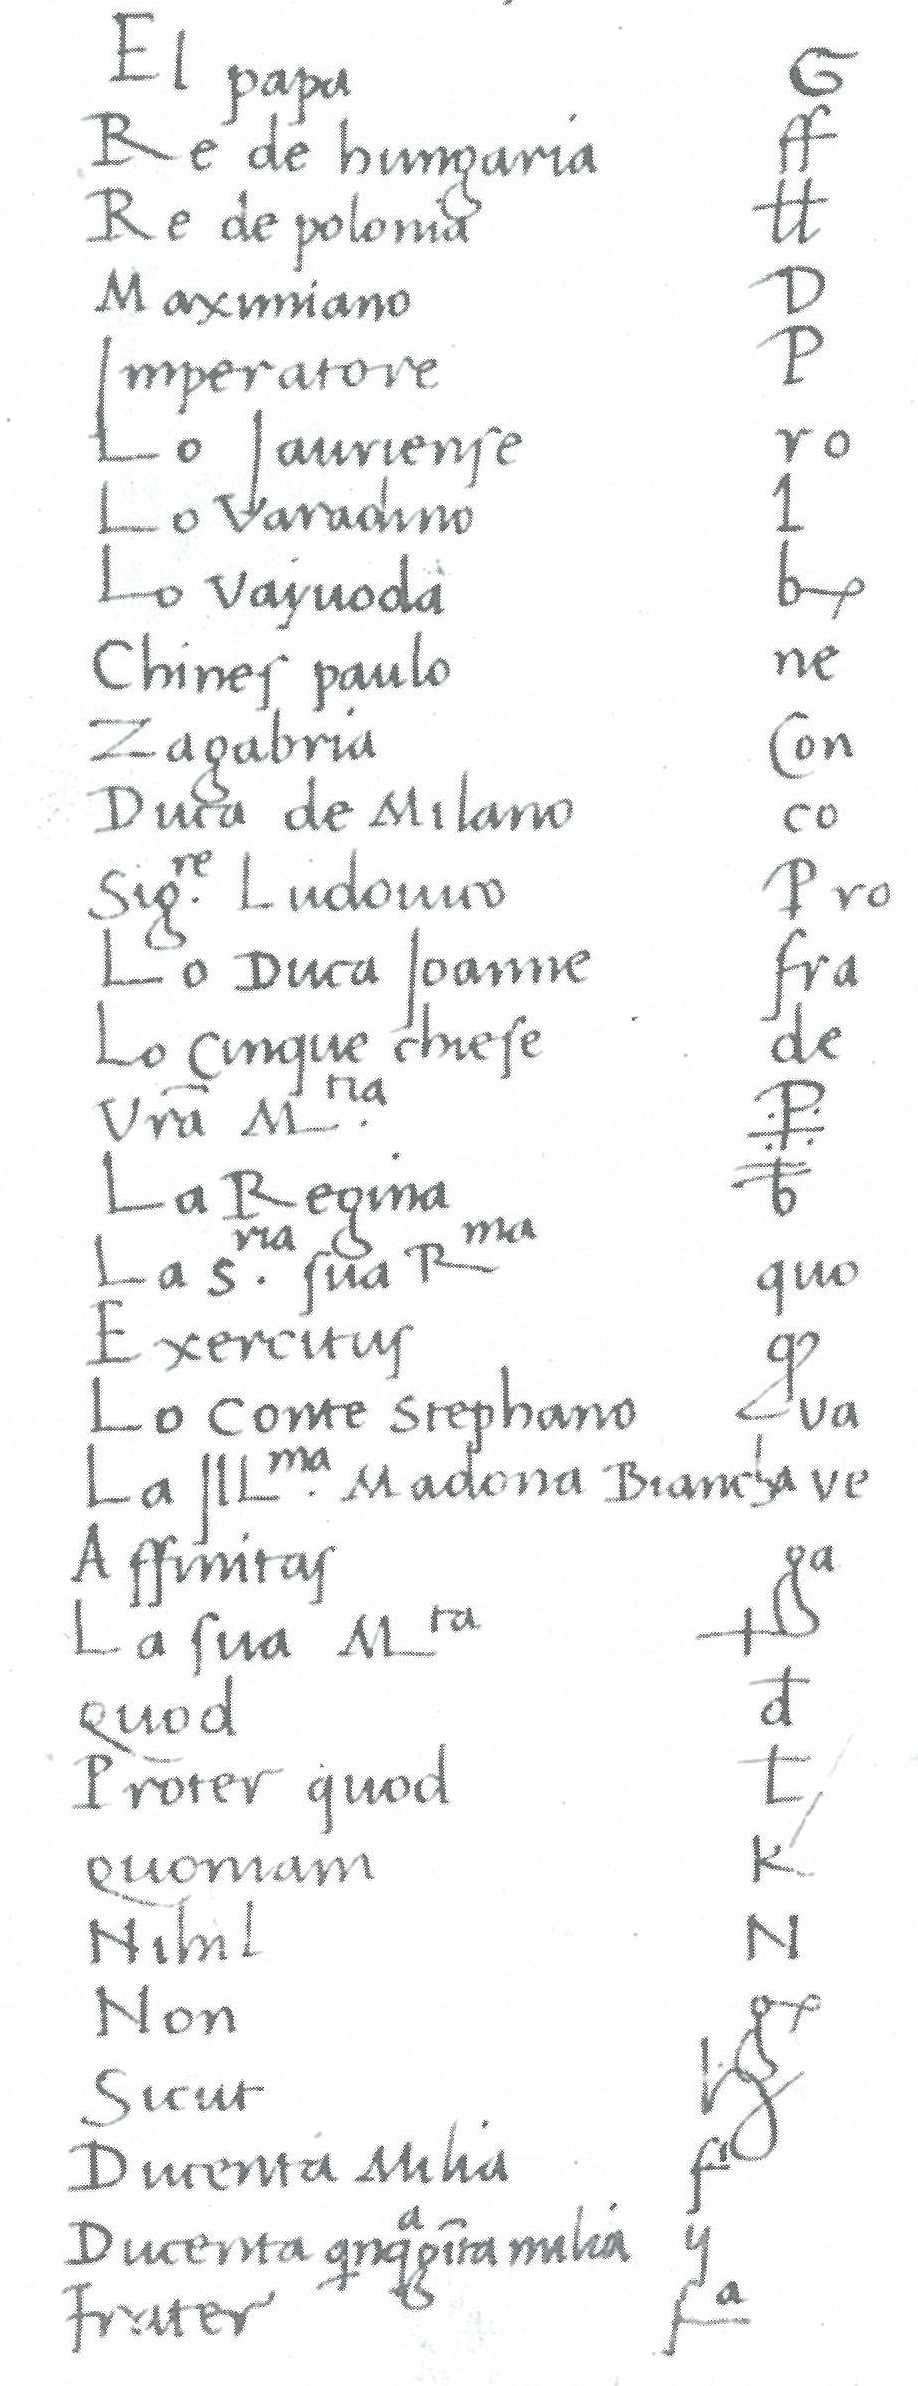 El papa G
Re de hungaria ff
Re de polonia tt
Maximiano D
Imperatore P
Lo Jauriense ro
Lo Varadino 1
Lo Vayuoda b
Chines paulo ne
Zagabria Con
Duca de Milano co
Sig.re Ludouico Pro
Lo Duca Joanne fra
Lo Cinque chiese de
Vrā M.tia P
La Regina b
La S.ria sua Rma quo
Exercitus q
Lo Conte Stephano va
La JlL.ma Madona Biancha ve
Affinitas ga
La sua Mta
quod d
Prōter quod t
quoniam k
Nihil N
Non g
Sicut
Ducenta Milia f
Ducenta milia y
frater fa